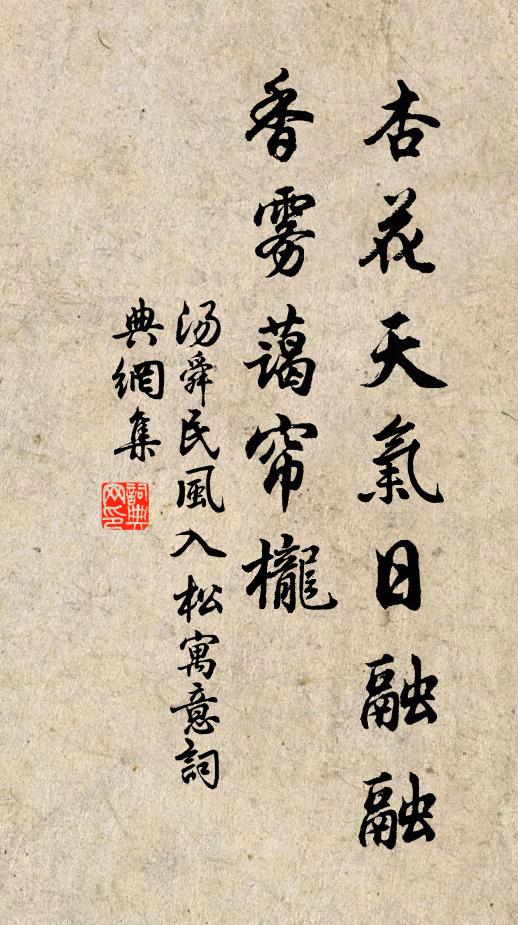 杏花天氣日融融
香雾藹帘櫳
汤舜民風入松寓意詞
典網集
詞典
网印